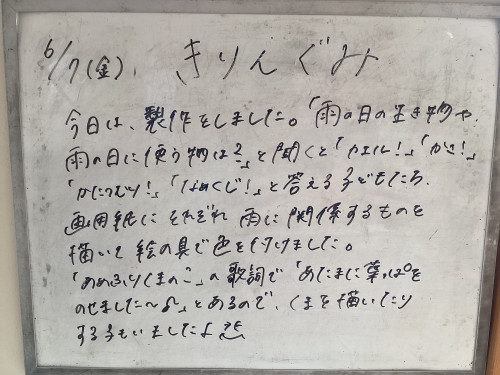 6/7(金). きりんぐみ
今日は、製作をしました。「雨の日の生き物や
雨の日に使う物は?」と聞くと「カエル!」「かさ!」
「かたつむり!」「なめくじ!」と答える子どもたち.
画用紙にそれぞれ雨に関係するものを
描いて絵の具で色を付けました。
「あめふりくまのこ」の歌詞で「あたまに葉っぱを
のせました〜♪」とあるので、くまを描いたり
する子もいましたよ